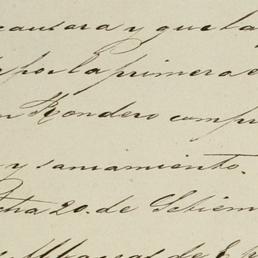 causara y que la
por la primera
Rondero comp
y saneamiento.
fecha 20. de Setiem
de